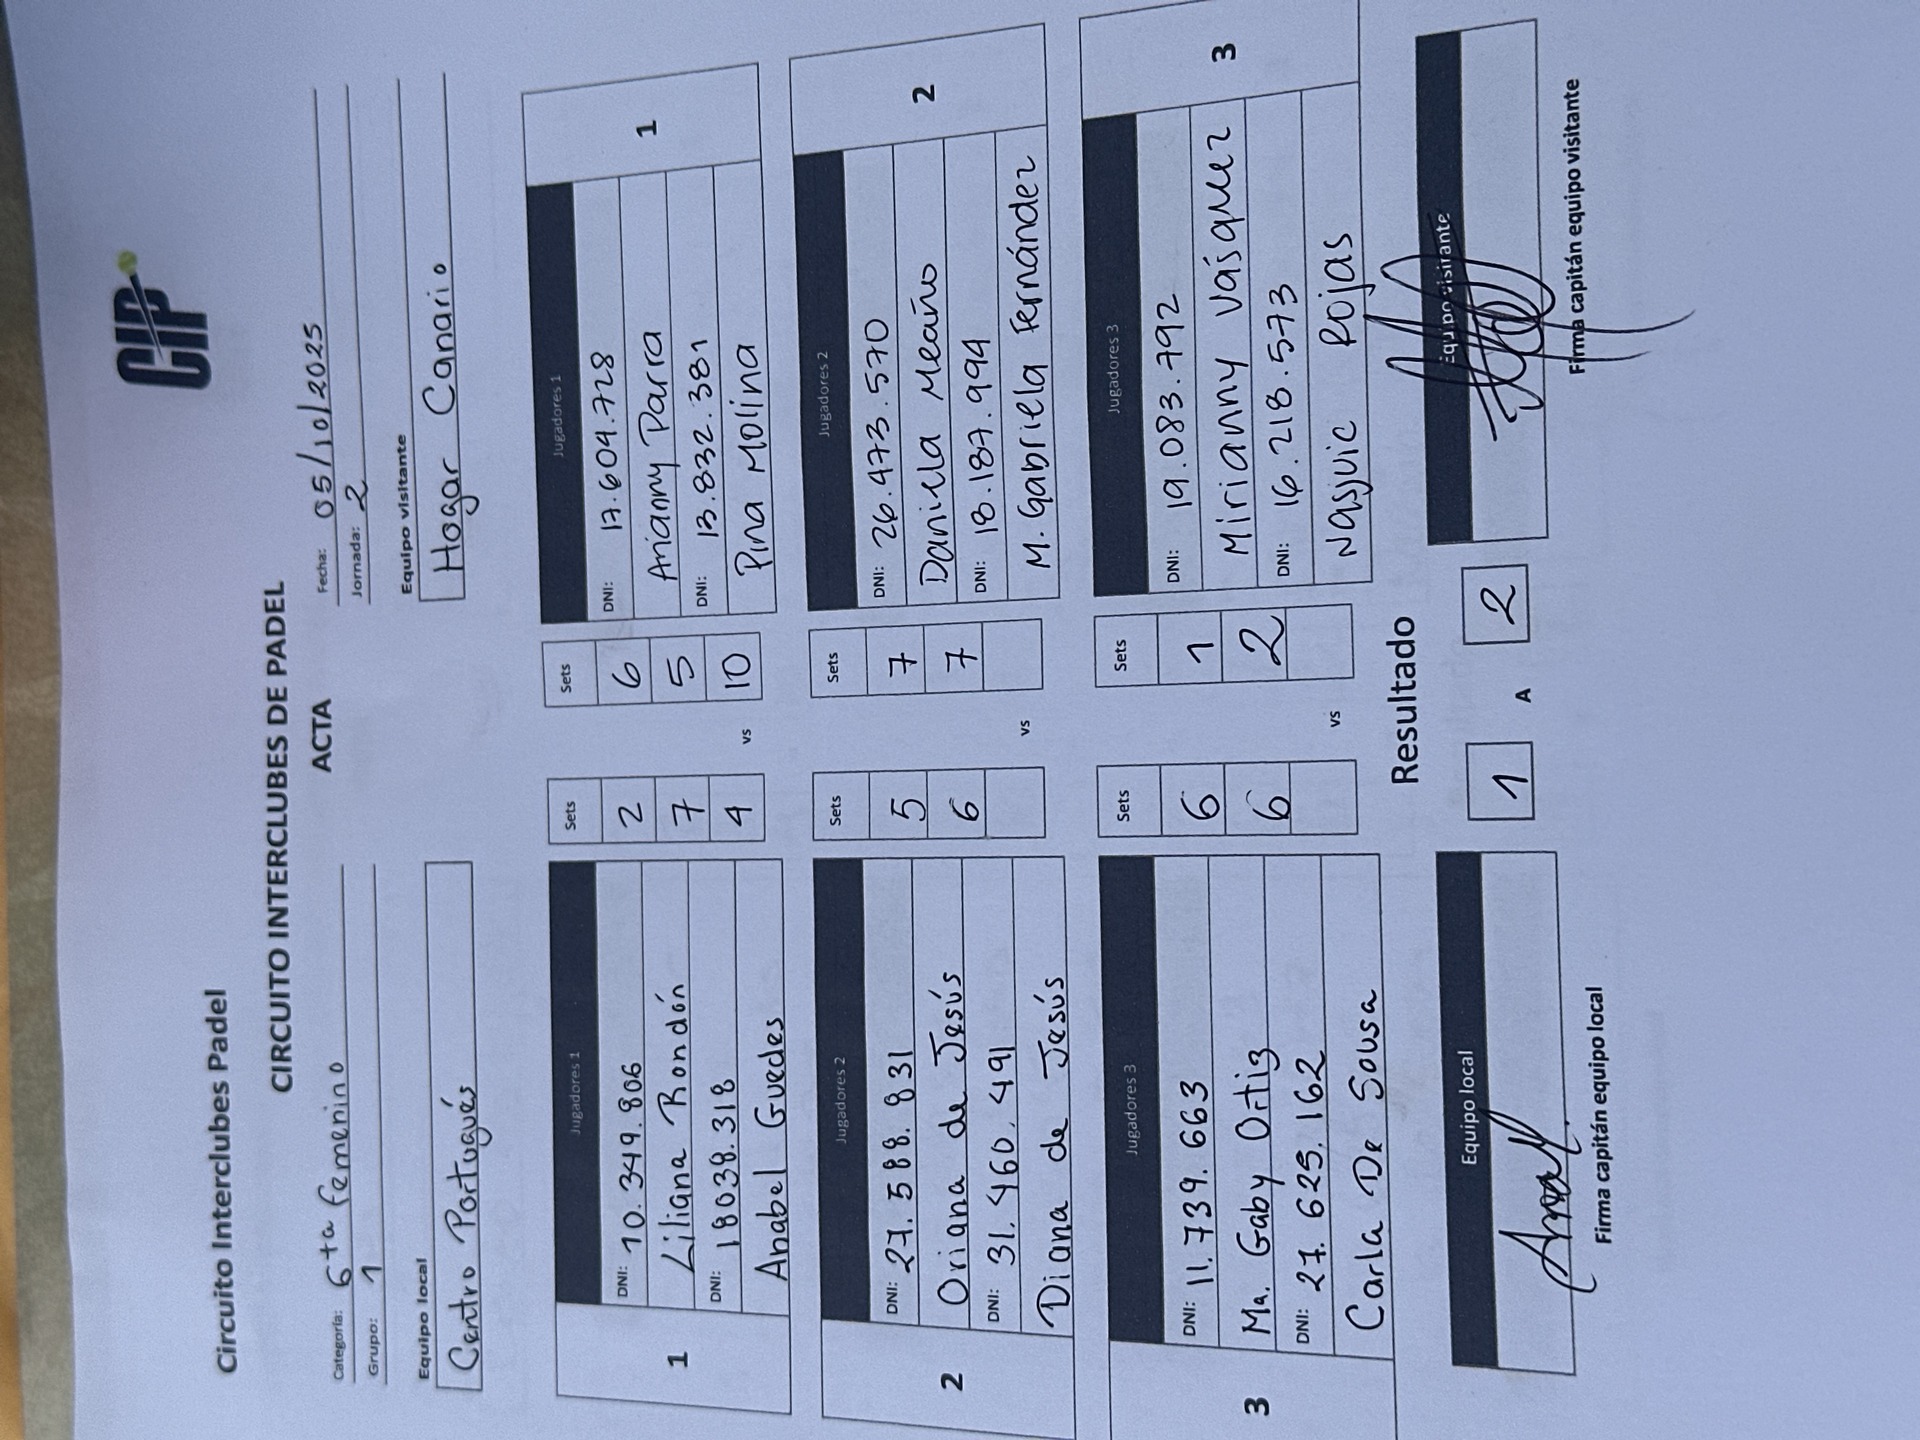 Circuito Interclubes Padel
CIP
CIRCUITO INTERCLUBES DE PADEL
ACTA
Categoría: 6ta femenino
Fecha: 05/10/2025
Grupo: 1
Jornada: 2
Equipo local
Equipo visitante
Centro Portugués
Hogar Canario
1
Jugadores 1
Sets
Sets
Jugadores 1
1
DNI: 10.349.806
2
6
DNI: 17.604.728
Liliana Rondón
7
5
Arianny Parra
DNI: 18038.318
4
10
DNI: 13.832.381
Anabel Guedes
vs
Pina Molina
2
Jugadores 2
Sets
Sets
Jugadores 2
2
DNI: 27.588.831
5
7
DNI: 26.473.570
Oriana de Jesús
6
7
Daniela Meaño
DNI: 31.460.491
DNI: 18.187.994
Diana de Jesús
vs
M. Gabriela Fernández
3
Jugadores 3
Sets
Sets
Jugadores 3
3
DNI: 11.739.663
6
1
DNI: 19.083.792
Ma. Gaby Ortiz
6
2
Mirianny Vásquez
DNI: 27.625.162
DNI: 16.218.573
Carla De Sousa
vs
Nasjvic Rojas
Resultado
Equipo local
1 A 2
Equipo visirante
Firma capitán equipo local
Firma capitán equipo visitante